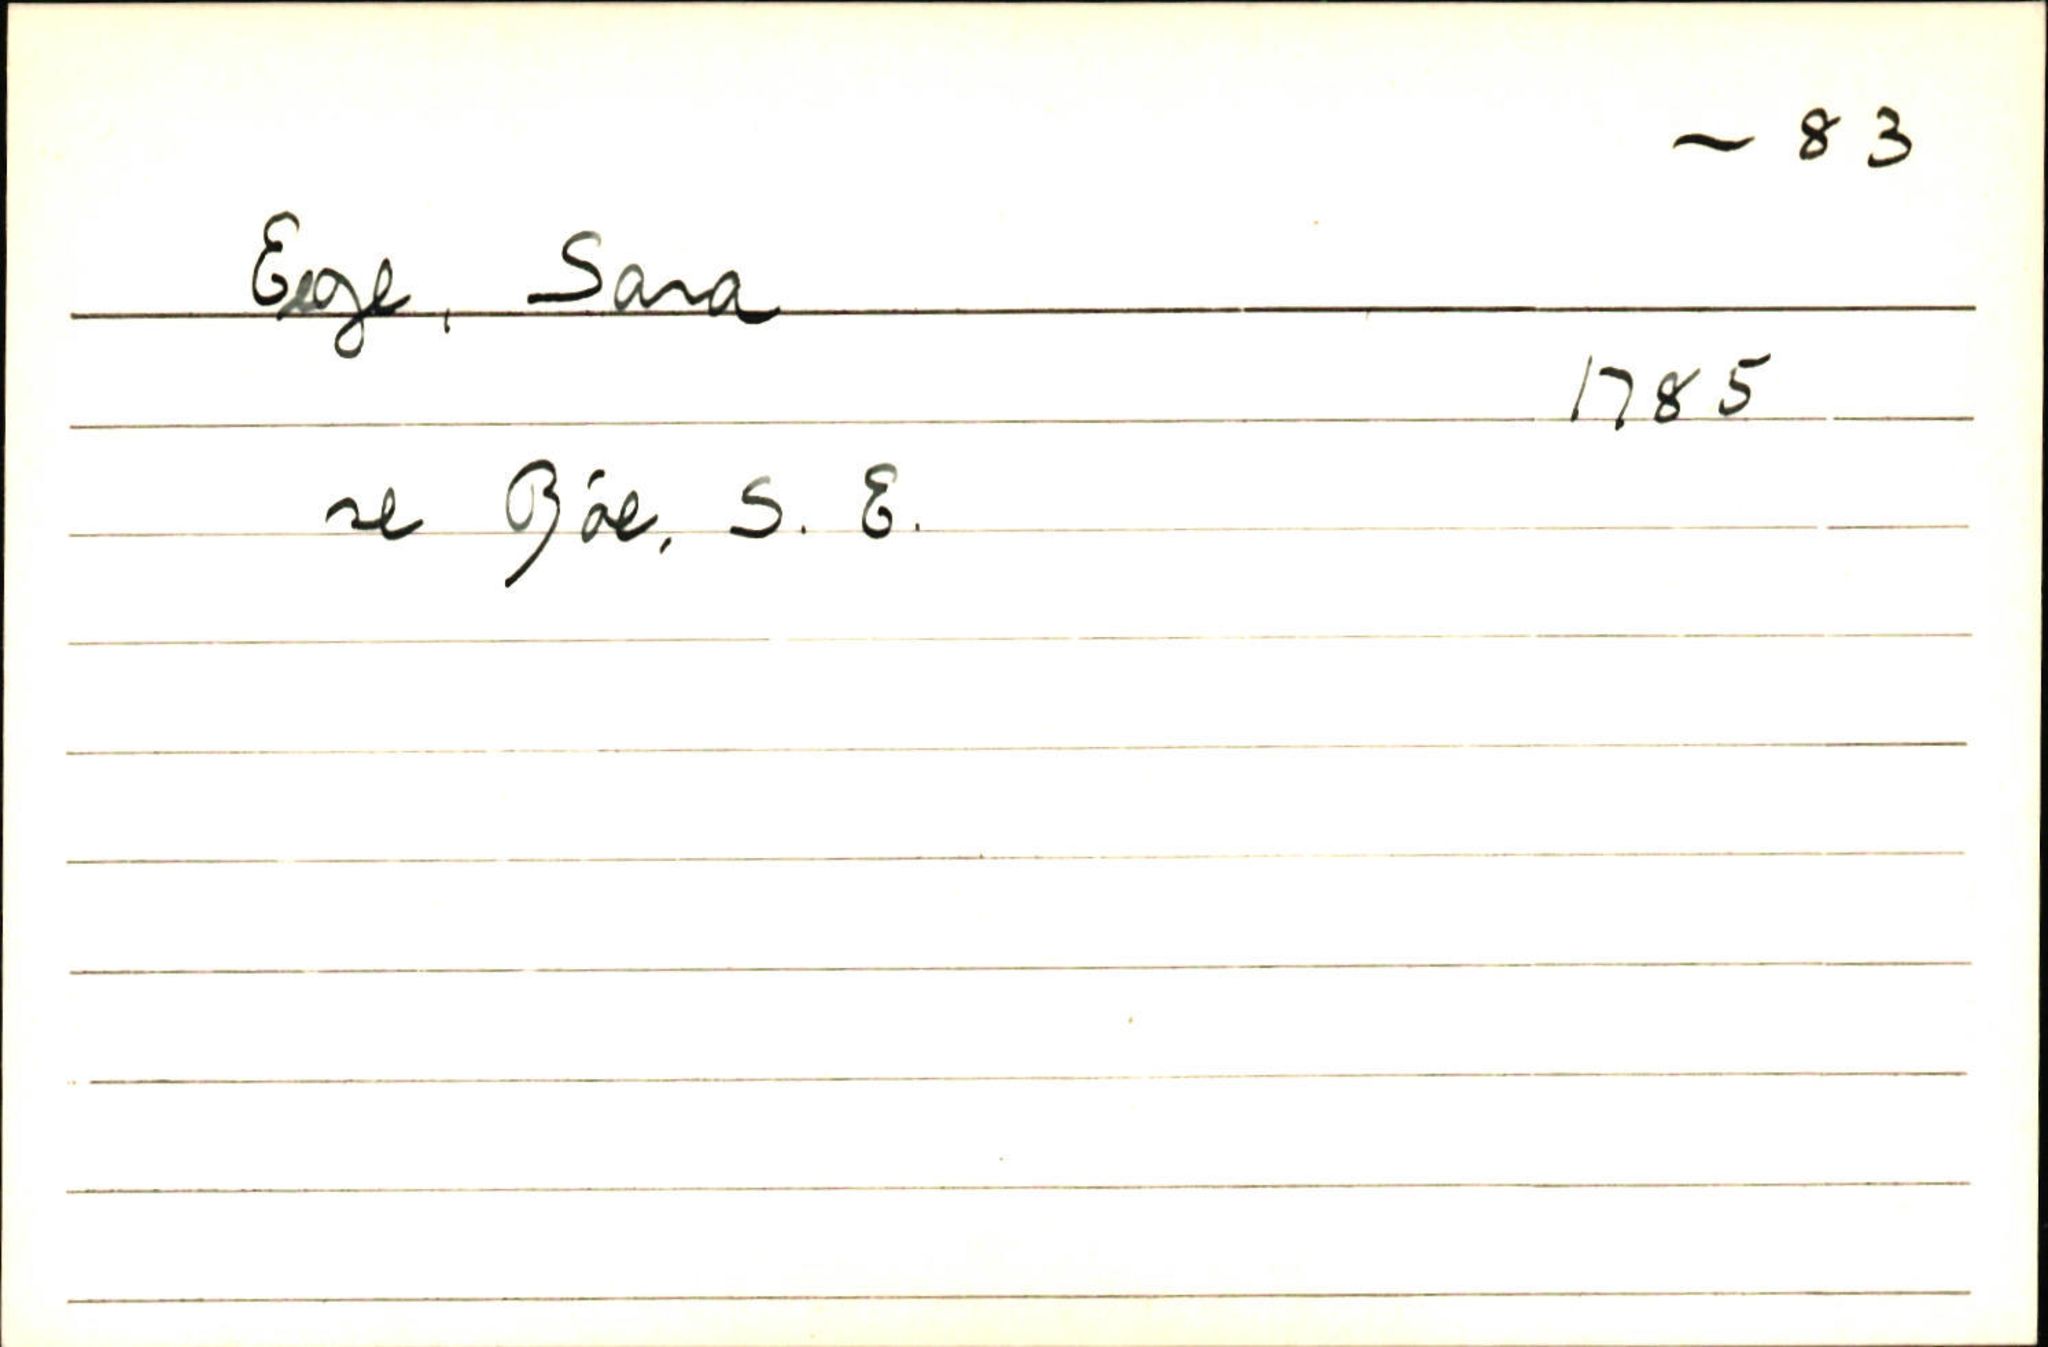 ~ 83
Eege, Sara
1785
se Böe, S. E.